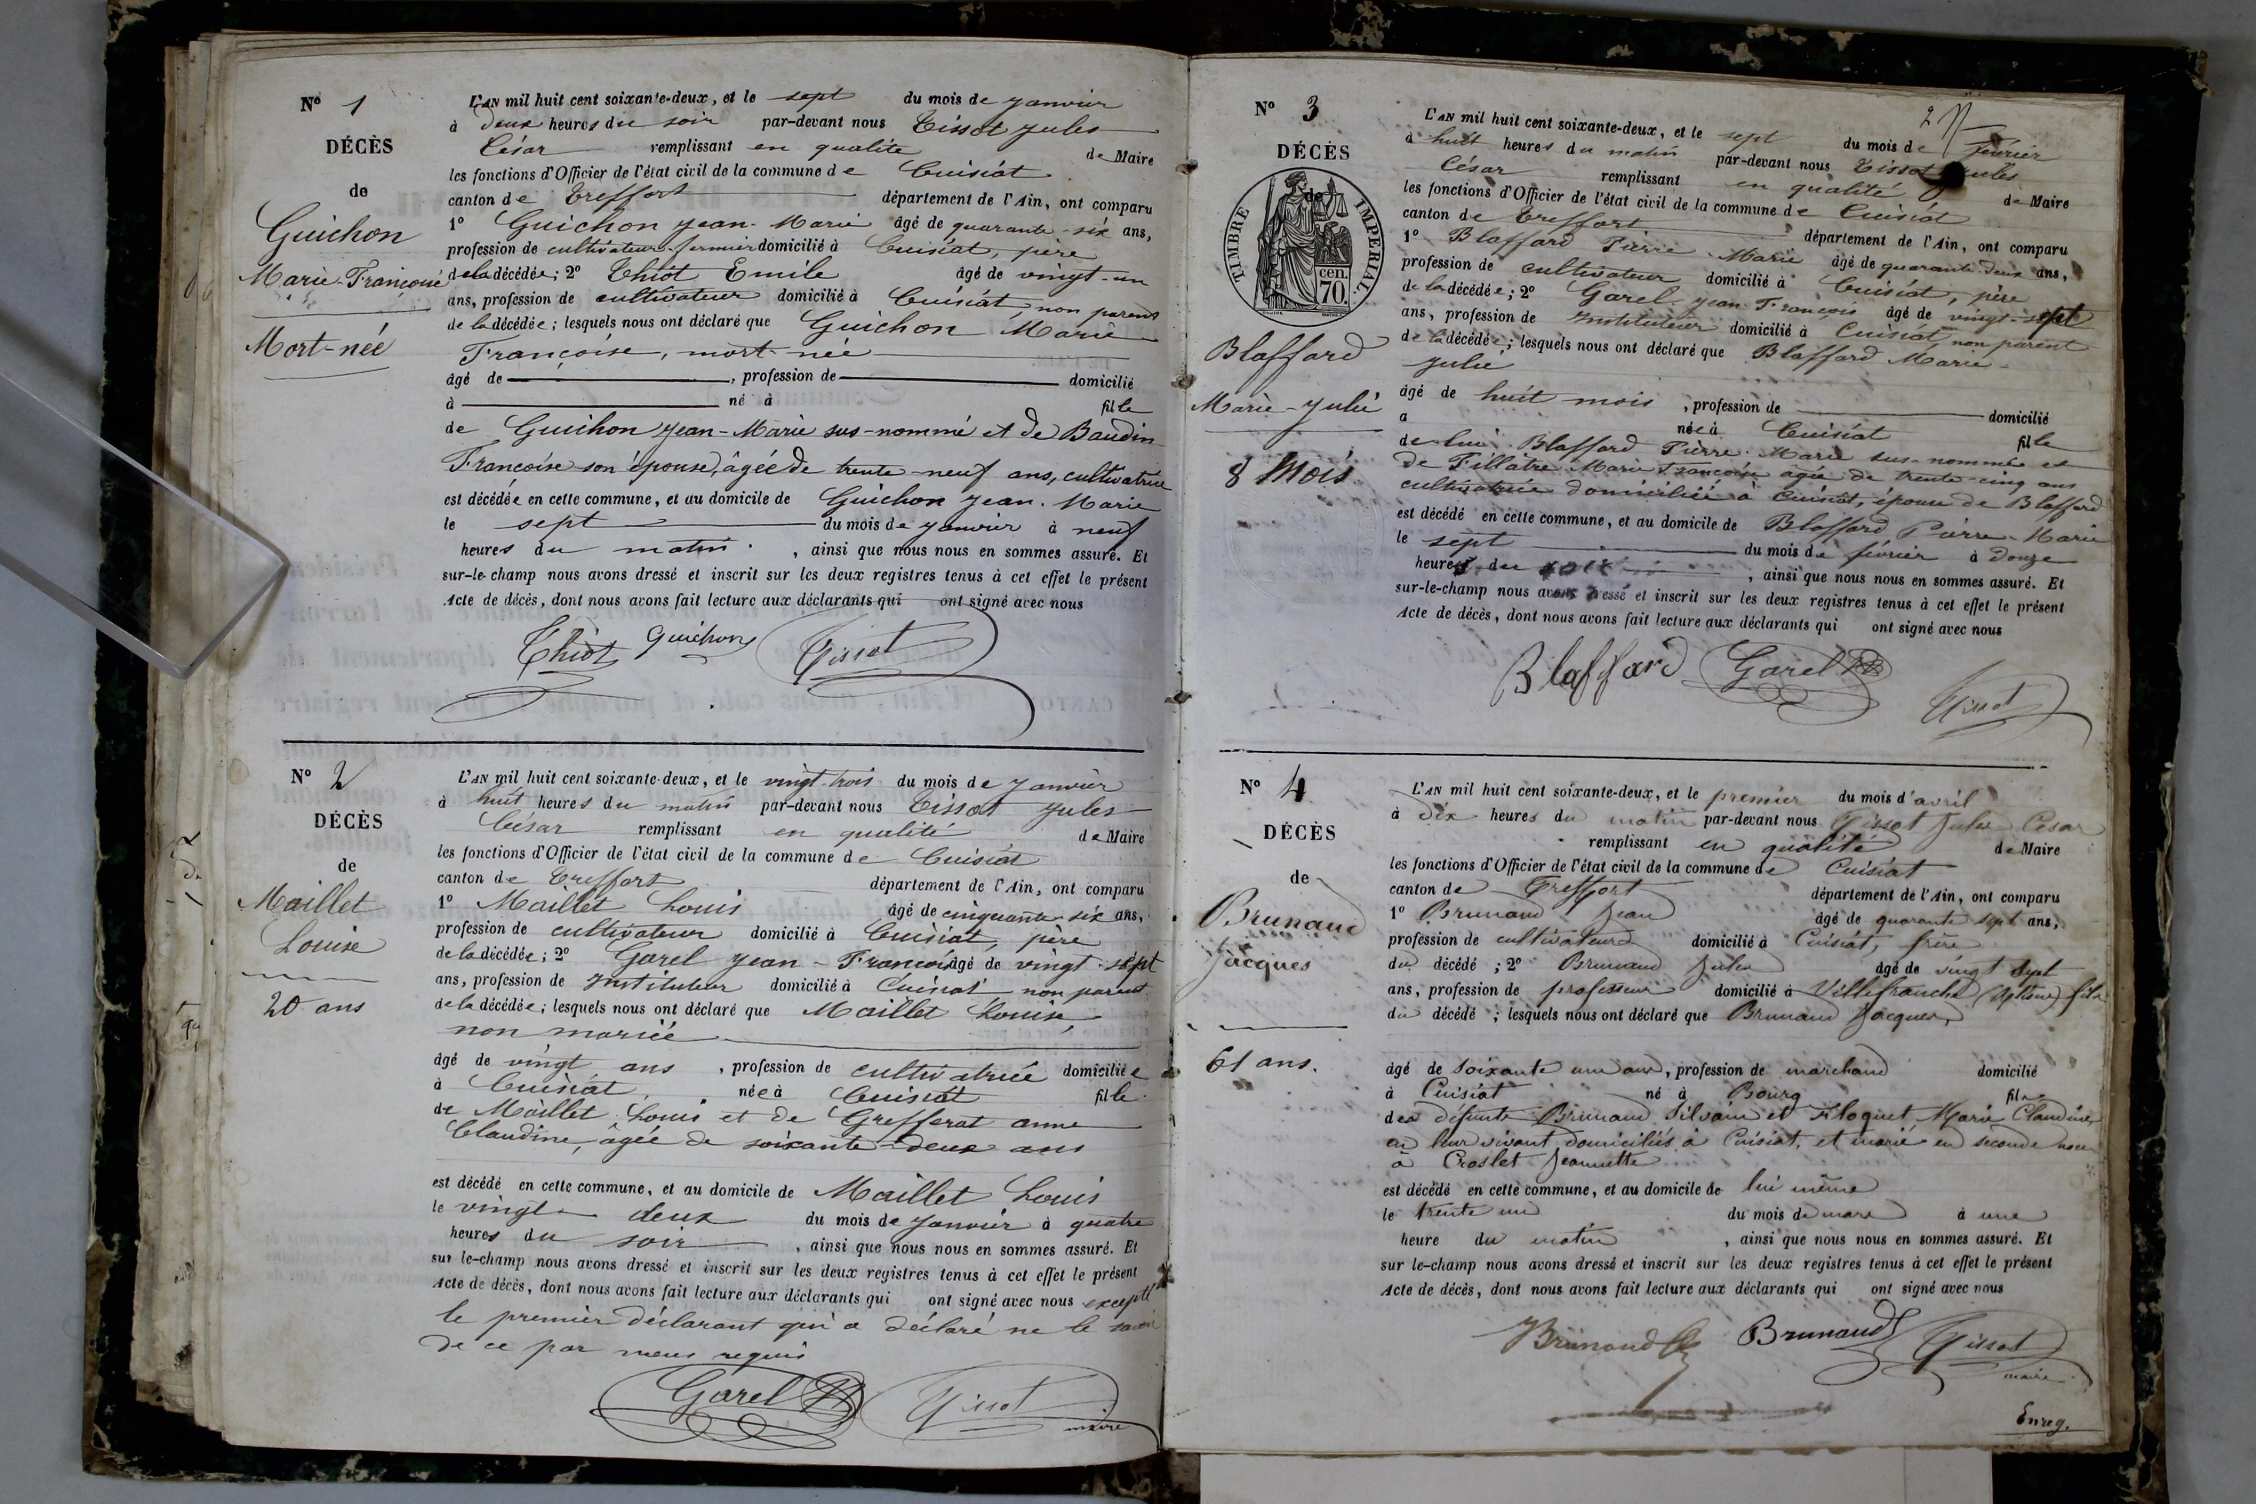 N° 1
DÉCÈS
de
Guichon
Marie-Françoise
Mort-née
L'AN mil huit cent soixante-deux, et le sept du mois de janvier
à deux heures du soir par-devant nous Tissot Jules
César remplissant en qualité de Maire
les fonctions d'Officier de l'état civil de la commune de Cuisiat
canton de Treffort département de l'Ain, ont comparu
1° Guichon Jean-Marie âgé de quarante-six ans,
profession de cultivateur-fermier domicilié à Cuisiat, père
de la décédée; 2° Thiot Emile âgé de vingt-un
ans, profession de cultivateur domicilié à Cuisiat non parent
de la décédée; lesquels nous ont déclaré que Guichon Marie
Françoise, mort-née
âgé de , profession de domicilié
à né à fille
de Guichon Jean-Marie sus-nommé et de Baudin
Françoise son épouse, âgée de trente-neuf ans, cultivatrice
est décédée en cette commune, et au domicile de Guichon Jean-Marie
le sept du mois de janvier à neuf
heures du matin , ainsi que nous nous en sommes assuré. Et
sur-le-champ nous avons dressé et inscrit sur les deux registres tenus à cet effet le présent
Acte de décès, dont nous avons fait lecture aux déclarants qui ont signé avec nous
Thiot Guichon Tissot
N° 2
DÉCÈS
de
Maillet
Louise
20 ans
L'AN mil huit cent soixante-deux, et le vingt-trois du mois de janvier
à huit heures du matin par-devant nous Tissot Jules
César remplissant en qualité de Maire
les fonctions d'Officier de l'état civil de la commune de Cuisiat
canton de Treffort département de l'Ain, ont comparu
1° Maillet Louis âgé de cinquante-six ans,
profession de cultivateur domicilié à Cuisiat, père
de la décédée; 2° Garel Jean-François âgé de vingt-sept
ans, profession de Instituteur domicilié à Cuisiat non parent
de la décédée; lesquels nous ont déclaré que Maillet Louise,
non mariée
âgé de vingt ans , profession de cultivatrice domiciliée
à Cuisiat, née à Cuisiat fille
de Maillet Louis et de Grefferat anne
Claudine, âgée de soixante-deux ans
est décédé en cette commune, et au domicile de Maillet Louis
le vingt-deux du mois de janvier à quatre
heures du soir , ainsi que nous nous en sommes assuré. Et
sur le-champ nous avons dressé et inscrit sur les deux registres tenus à cet effet le présent
Acte de décès, dont nous avons fait lecture aux déclarants qui ont signé avec nous excepté
le premier déclarant qui a déclaré ne le savoir
de ce par nous requis
Garel Tissot
maire
2
N° 3
DÉCÈS
de
TIMBRE IMPÉRIAL
cen.
70.
Blaffard
Marie-Julie
8 Mois
L'AN mil huit cent soixante-deux, et le sept du mois de février
à huit heures du matin par-devant nous Tissot Jules
César remplissant en qualité de Maire
les fonctions d'Officier de l'état civil de la commune de Cuisiat
canton de Treffort département de l'Ain, ont comparu
1° Blaffard Pierre-Marie âgé de quarante-deux ans,
profession de cultivateur domicilié à Cuisiat, père
de la décédée; 2° Garel Jean-François âgé de vingt-sept
ans, profession de Instituteur domicilié à Cuisiat non parent
de la décédée; lesquels nous ont déclaré que Blaffard Marie-
Julie
âgé de huit mois , profession de domicilié
a née à Cuisiat fille
de lui Blaffard Pierre-Marie sus-nommé et
de Fillâtre Marie Françoise âgée de trente-cinq ans
cultivatrice domiciliée à Cuisiat, épouse de Blaffard
est décédé en cette commune, et au domicile de Blaffard Pierre-Marie
le sept du mois de février à douze
heures du , ainsi que nous nous en sommes assuré. Et
sur-le-champ nous avons dressé et inscrit sur les deux registres tenus à cet effet le présent
Acte de décès, dont nous avons fait lecture aux déclarants qui ont signé avec nous
Blaffard Garel Tissot
N° 4
DÉCÈS
de
Brunaud
Jacques
61 ans.
L'AN mil huit cent soixante-deux, et le premier du mois d'avril
à dix heures du matin par-devant nous Tissot Jules César
remplissant en qualité de Maire
les fonctions d'Officier de l'état civil de la commune de Cuisiat
canton de Treffort département de l'Ain, ont comparu
1° Brunaud Jean âgé de quarante sept ans,
profession de cultivateur domicilié à Cuisiat, frère
du décédé ; 2° Brunaud Jules âgé de vingt sept
ans, profession de professeur domicilié à Villefranche fils
du décédé ; lesquels nous ont déclaré que Brunaud Jacques,
âgé de soixante un ans, profession de marchand domicilié
à Cuisiat né à Bourg fils
des défunts Brunaud Silvain et Floquet Marie Claudine,
en leur vivant domiciliés à Cuisiat, et marié en seconde noce
à Croslet Jeannette
est décédé en cette commune, et au domicile de lui même
le trente un du mois de mars à une
heure du matin , ainsi que nous nous en sommes assuré. Et
sur le-champ nous avons dressé et inscrit sur les deux registres tenus à cet effet le présent
Acte de décès, dont nous avons fait lecture aux déclarants qui ont signé avec nous
Brunaud Brunaud Tissot
maire
Enreg.